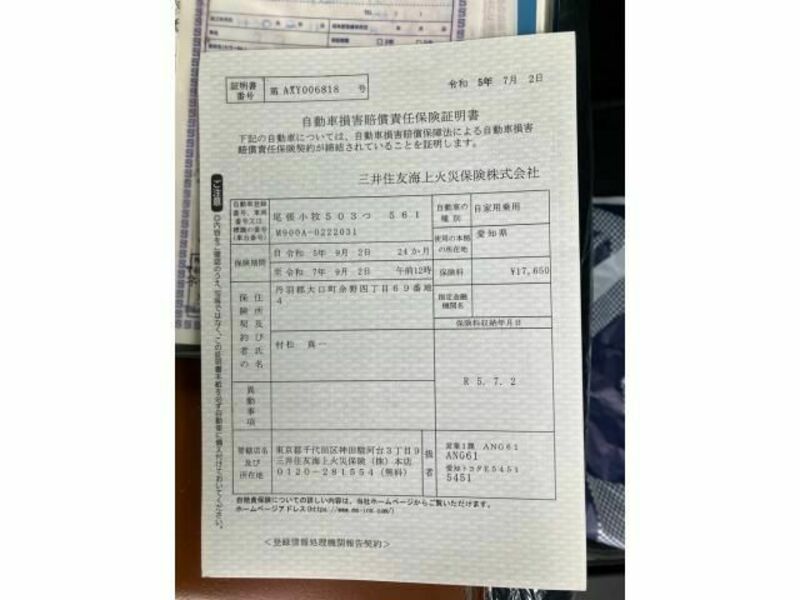 証明書番号 第 AXY006818 号
令和 5年 7月 2日
自動車損害賠償責任保険証明書
下記の自動車については、自動車損害賠償保障法による自動車損害
賠償責任保険契約が締結されていることを証明します。
三井住友海上火災保険株式会社
ご注意
◎内容をご確認のうえ、写等ではなく、この証明書本紙を必ず自動車に備え付けておいてください。
自動車登録番号、車両番号又は標識の番号(車台番号)
尾張小牧503つ 561
M900A-0222031
自動車の種別
自家用乗用
使用の本拠の所在地
愛知県
保険期間
自 令和 5年 9月 2日 24か月
至 令和 7年 9月 2日 午前12時
保険料
¥17,650
保険契約者の住所及び氏名
丹羽郡大口町余野四丁目69番地
4
村松 真一
指定金融機関名
保険料収納年月日
R 5.7.2
異動事項
管轄店名及び所在地
東京都千代田区神田駿河台3丁目9
三井住友海上火災保険(株)本店
0120-281554(無料)
扱者
営業1課 ANG61
ANG61
愛知トヨタE5451
5451
自賠責保険についての詳しい内容は、当社ホームページからご覧いただけます。
ホームページアドレス(https://www.ms-ins.com/)
<登録情報処理機関報告契約>